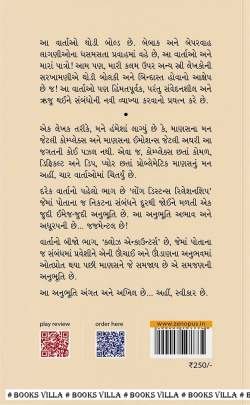 આ વાર્તાઓ થોડી બોલ્ડ છે. બેબાક અને બેપરવાહ
લાગણીઓના ધસમસતા પ્રવાહમાં વહે છે, આ વાર્તાઓ અને
મારાં પાત્રો! આમ પણ, મારી કલમ ઉપર અન્ય સ્ત્રી લેખકોની
સરખામણીએ થોડી બોલકી અને બિન્દાસ્ત હોવાનો આક્ષેપ
છે જ! આ વાર્તાઓ પણ હિંમતપૂર્વક, પરંતુ સંવેદનશીલ અને
ઋજુ થઈને સંબંધોની નવી વ્યાખ્યા કરવાનો પ્રયત્ન કરે છે.
•
એક લેખક તરીકે, મને હંમેશાં લાગ્યું છે કે, માણસના મન
જેટલી કોમ્પ્લેક્સ અને માણસના ઈમોશન્સ જેટલી અઘરી આ
જગતની કોઈ પઝલ નથી. એવા જ, કોમ્પ્લેક્સ છતાં કોમળ,
ડિફિકલ્ટ અને ડિપ, પ્યોર છતાં પ્રોબ્લેમેટિક માણસનું મન
અહીં, ચાર વાર્તાઓમાં ચિતર્યું છે.
દરેક વાર્તાનો પહેલો ભાગ છે 'લૉંગ ડિસ્ટન્સ રિલેશનશિપ'
જેમાં પોતાના જ નિકટના સંબંધને દૂરથી જોઈને મળતી એક
જુદી ઈમેજ-જુદી અનુભૂતિ છે. આ અનુભૂતિ અભાવ અને
અધૂરપની છે... જજમેન્ટલ છે!
વાર્તાનો બીજો ભાગ, 'ક્લોઝ એન્કાઉન્ટર્સ' છે, જેમાં પોતાના
જ સંબંધમાં પ્રવેશીને એની ઊંચાઈ અને ઊંડાણના અનુભવમાં
ઓતપ્રોત થયા પછી માણસને જે સમજાય છે એ સમજણની
અનુભૂતિ છે.
આ અનુભૂતિ અંગત અને અખિલ છે... અહીં, સ્વીકાર છે.
play review
order here
www.zenopus.in
₹250/-
# BOOKS VILLA # BOOKS VILLA # BOOKS VILLA # BOOKS VILLA #